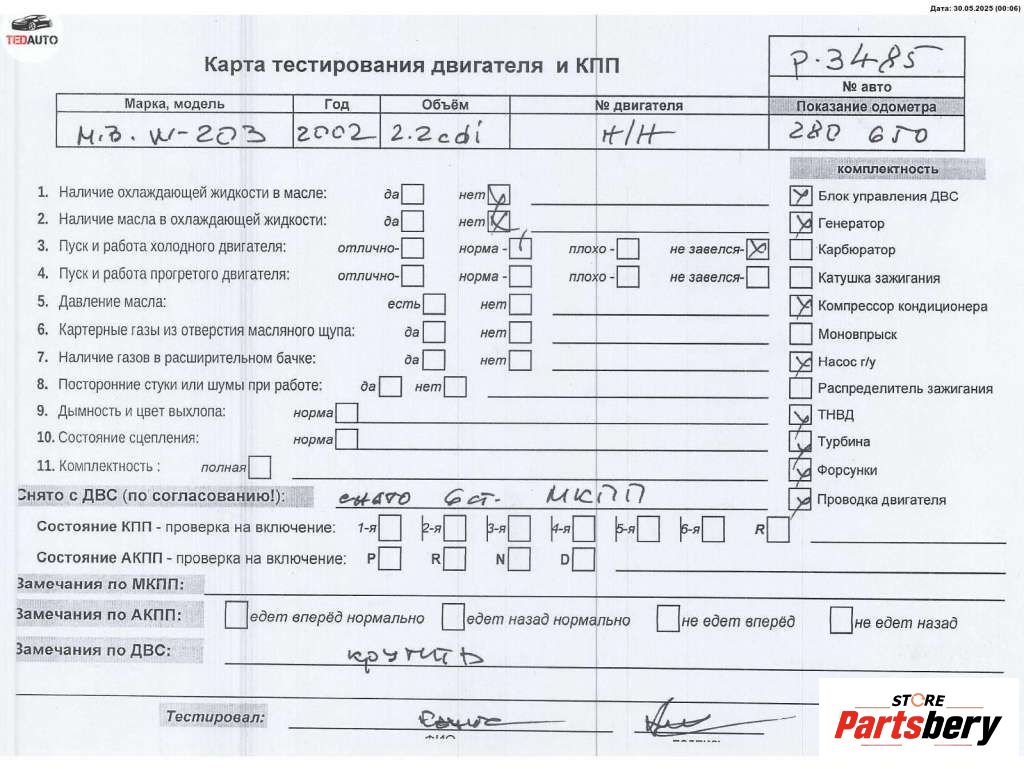 Дата: 30.05.2025 (00:06)
TEDAUTO
Карта тестирования двигателя и КПП
р.3485
№ авто
Марка, модель Год Объём № двигателя Показание одометра
М.В. W-203 2002 2.2cdi Н/Н 280 650
комплектность
1. Наличие охлаждающей жидкости в масле: да нет Блок управления ДВС
2. Наличие масла в охлаждающей жидкости: да нет Генератор
3. Пуск и работа холодного двигателя: отлично- норма - плохо - не завелся- Карбюратор
4. Пуск и работа прогретого двигателя: отлично- норма - плохо - не завелся- Катушка зажигания
5. Давление масла: есть нет Компрессор кондиционера
6. Картерные газы из отверстия масляного щупа: да нет Моновпрыск
7. Наличие газов в расширительном бачке: да нет Насос г/у
8. Посторонние стуки или шумы при работе: да нет Распределитель зажигания
9. Дымность и цвет выхлопа: норма ТНВД
10. Состояние сцепления: норма Турбина
11. Комплектность : полная Форсунки
Снято с ДВС (по согласованию!): снято 6ст. МКПП Проводка двигателя
Состояние КПП - проверка на включение: 1-я 2-я 3-я 4-я 5-я 6-я R
Состояние АКПП - проверка на включение: P R N D
Замечания по МКПП:
Замечания по АКПП: едет вперёд нормально едет назад нормально не едет вперёд не едет назад
Замечания по ДВС: крутить
Тестировал:
ФИО подпись
STORE
Partsbery